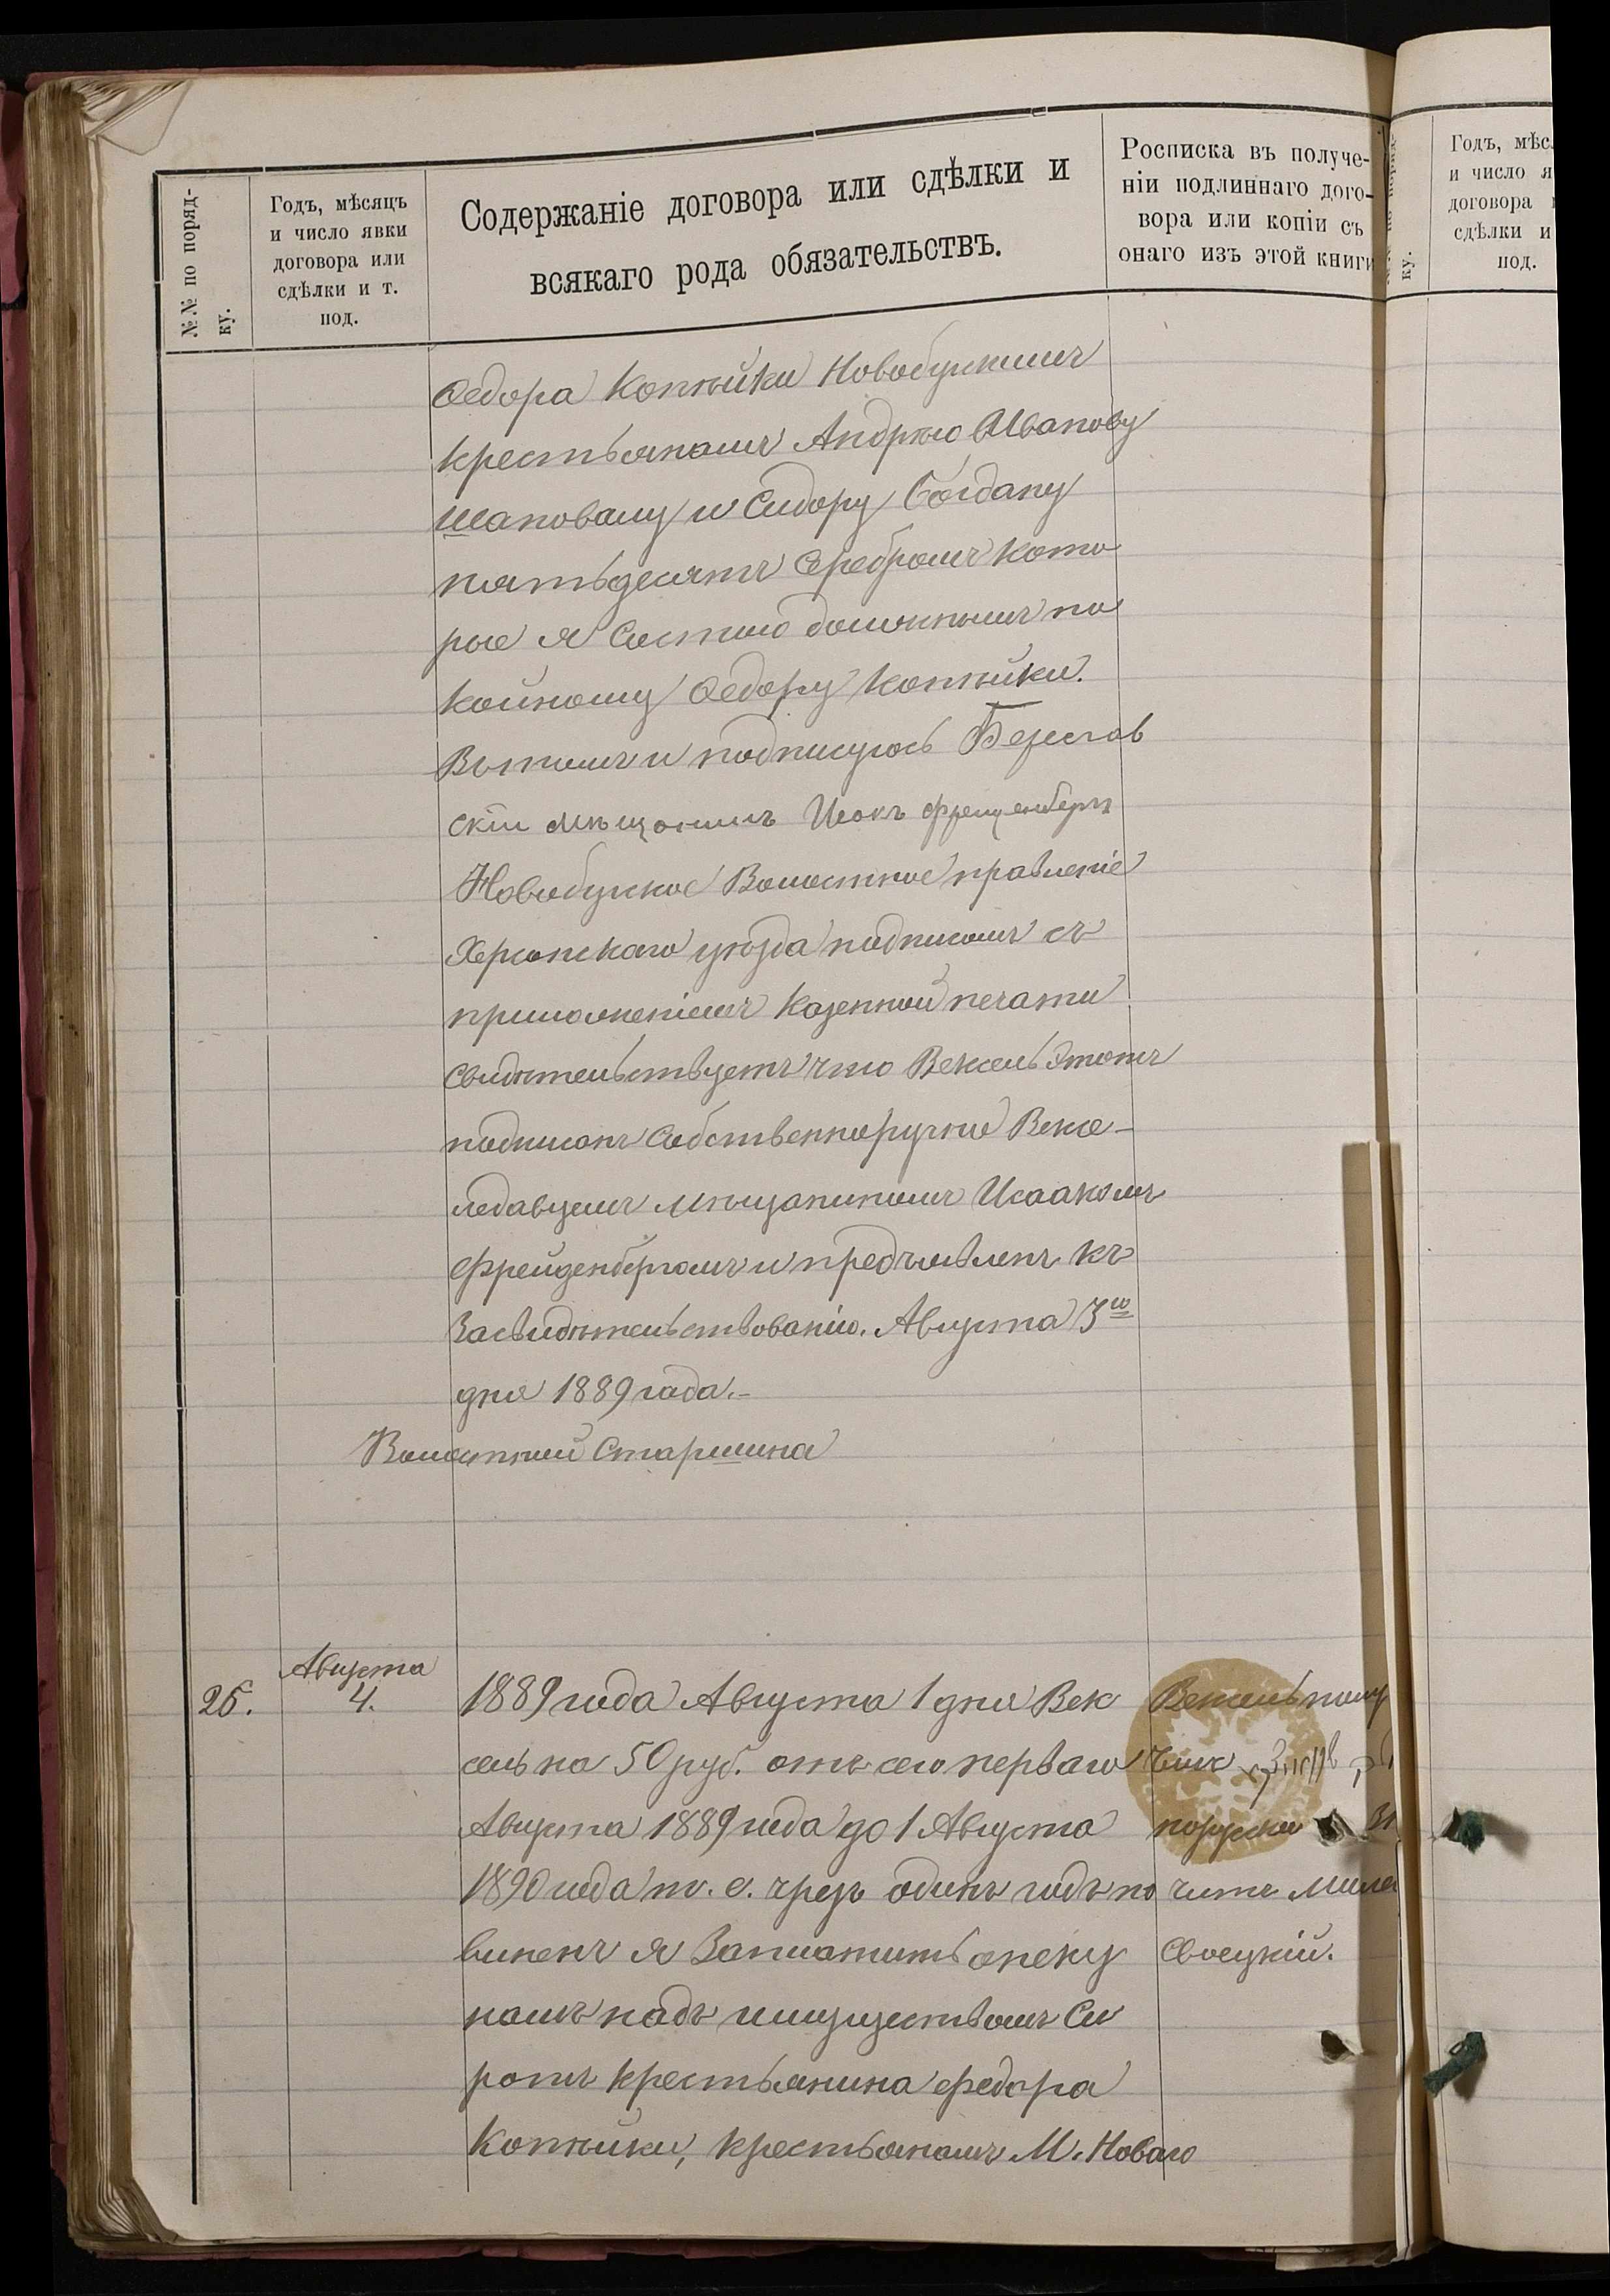 №№ по поряд-
ку.
Годъ, мѣсяцъ
и число явки
договора или
сдѣлки и т.
под.
Содержаніе договора или сдѣлки и
всякаго рода обязательствъ.
Росписка въ получе-
ніи подлиннаго дого-
вора или копіи съ
онаго изъ этой книги
Ѳедора Копѣйки Новобугскимъ
крестьянамъ Андрѣю Иванову
Шаповалу и Сидору Богдану
пятьдесятъ серебромъ кото
рые я Состою должнымъ по
койному Ѳедору Копѣйки.
Вътомъ и подписуюсь Береслав
скій мѣщанинъ
Новобугское Волостное правленіе
Херсонскаго уѣзда подписомъ съ
приложеніемъ Казенной печати
свидѣтельствуетъ что Вексель Этотъ
подписанъ Собственноручно Вексе-
ледавцемъ мѣщаниномъ Исаакомъ
Фрейденбергомъ и предъявленъ къ
Засвидѣтельствованію. Августа 3го
дня 1889 года.-
Волостной Старшина
Августа
26. 4.
1889 года Августа 1 дня Век
сель на 50 руб. отъ сего перваго
Августа 1889 года до 1 Августа
1890 года т. е. чрезъ одинъ годъ по
виненъ я Заплатить опеку
намъ надъ имуществомъ Си
ротъ крестьянина Федора
Копѣйки, крестьянамъ М. Новаго
Вексель полу
чилъ
по русски
Своецкій.
Годъ, мѣс
и число я
договора
сдѣлки и
под.